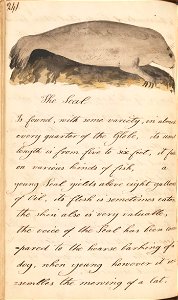 241
The Seal
Is found, with some variety, in almost
every quarter of the Globe, its usual
length is from five to six feet, it feeds
on various kinds of fish, a
young Seal yields above eight gallons
of Oil, its flesh is sometimes eaten
the skin also is very valuable,
the voice of the Seal has been com
=pared to the hoarse barking of a
dog, when young however it re
=sembles the mewing of a cat.